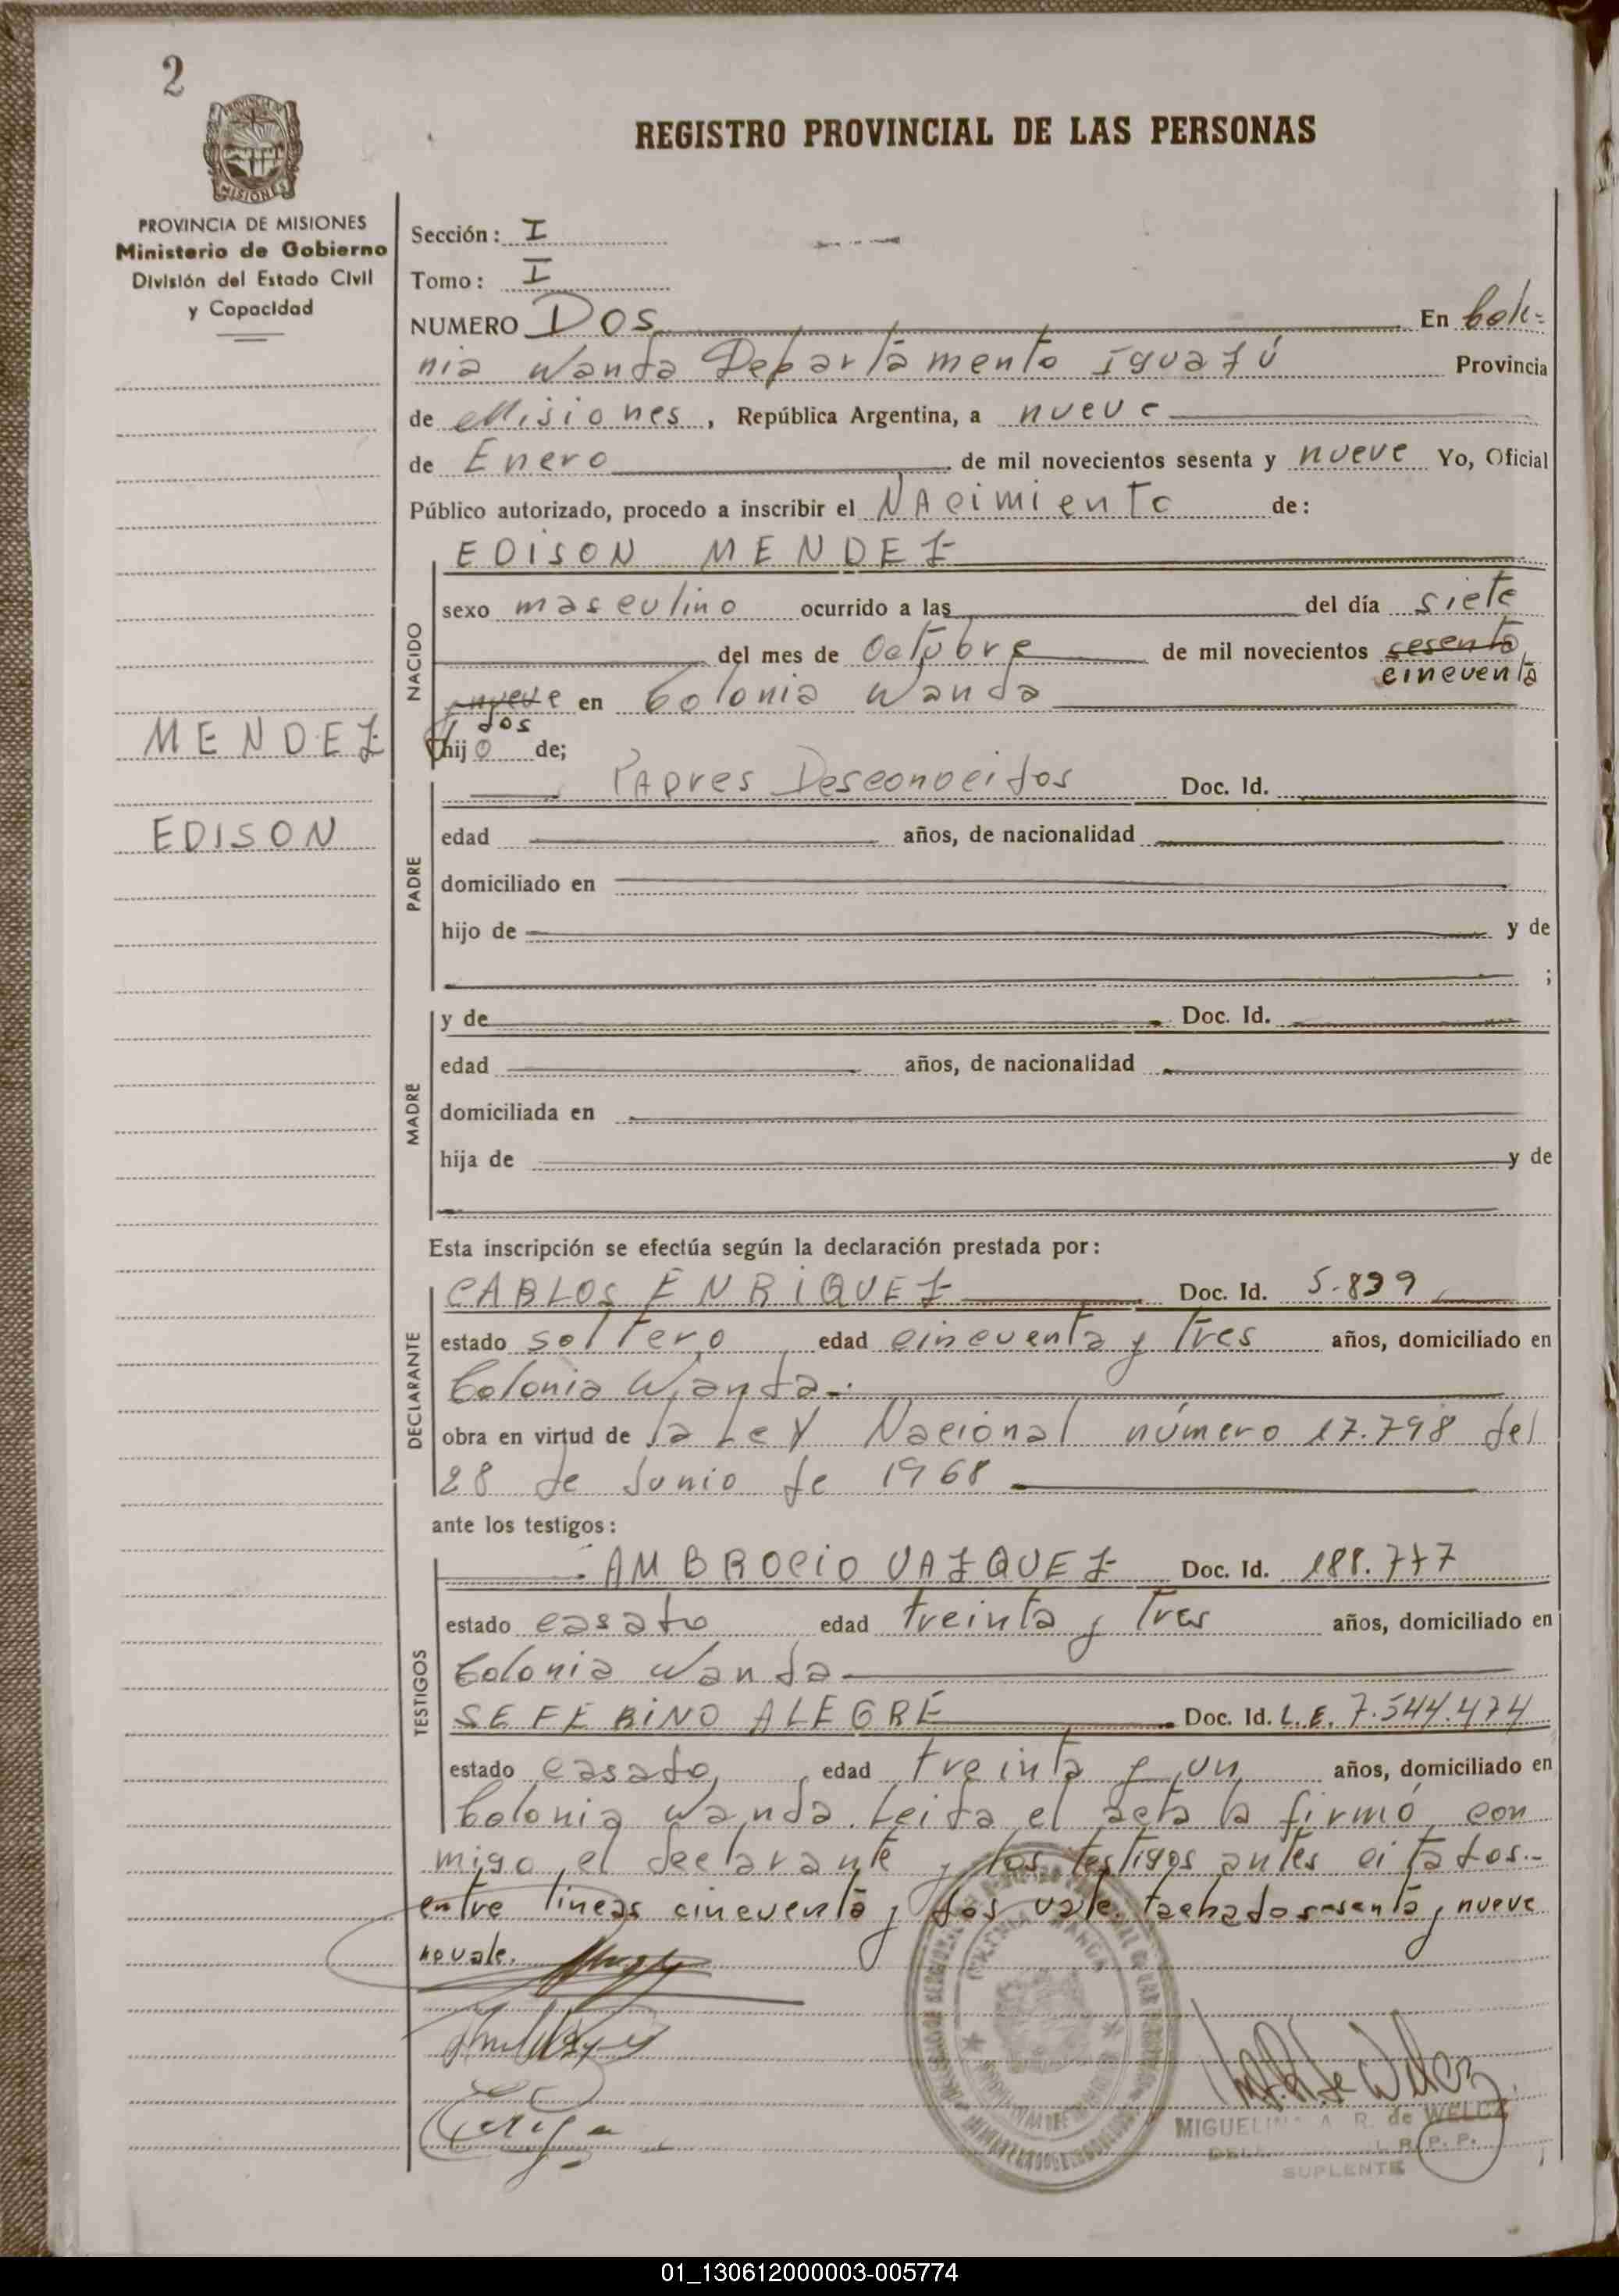 2
REGISTRO PROVINCIAL DE LAS PERSONAS
MISIONES
PROVINCIA DE MISIONES
Ministerio de Gobierno
División del Estado Civil
y Capacidad
MENDEZ
EDISON
Sección: I
Tomo: I
NUMERO Dos En Colo-
nia Wanda Departamento Iguazú Provincia
de Misiones, República Argentina, a nueve
de Enero de mil novecientos sesenta y nueve Yo, Oficial
Público autorizado, procedo a inscribir el Nacimiento de:
NACIDO
EDISON MENDEZ
sexo masculino ocurrido a las del día siete
del mes de Octubre de mil novecientos sesenta
cincuenta
y nueve en Colonia Wanda
y dos
hijo de;
PADRE
Padres Desconocidos Doc. Id.
edad años, de nacionalidad
domiciliado en
hijo de y de
;
MADRE
y de Doc. Id.
edad años, de nacionalidad
domiciliada en
hija de y de
Esta inscripción se efectúa según la declaración prestada por:
DECLARANTE
CARLOS ENRIQUEZ Doc. Id. 5.899
estado soltero edad cincuenta y tres años, domiciliado en
Colonia Wanda-.
obra en virtud de la Ley Nacional número 17.798 del
28 de Junio de 1968
ante los testigos:
TESTIGOS
AMBROCIO VAZQUEZ Doc. Id. 188.777
estado casado edad treinta y tres años, domiciliado en
Colonia Wanda
SEFERINO ALEGRE Doc. Id. L.E. 7.544.474
estado casado edad treinta y un años, domiciliado en
Colonia Wanda. Leida el acta la firmó con
migo el declarante y los testigos antes citados.-
entre lineas cincuenta y dos vale. tachado sesenta y nueve
no vale.
M. A. R. de Welcz
MIGUELINA A. R. de WELCZ
R. P. P.
SUPLENTE
01_130612000003-005774